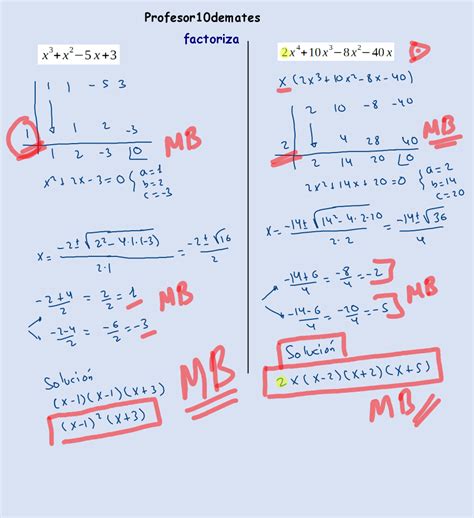 Profesor10demates
factoriza
x³+x²−5x+3
1 1 -5 3
1 1 2 -3
1 2 -3 0
MB
x²+2x-3=0 { a=1 b=2 c=-3
x= -2±√(2²-4·1·(-3)) / 2·1 = -2±√16 / 2
-2+4 / 2 = 2/2 = 1
MB
-2-4 / 2 = -6/2 = -3
Solución
(x-1)(x-1)(x+3)
(x-1)²(x+3)
MB
2x⁴+10x³−8x²−40x
x(2x³+10x²-8x-40)
2 10 -8 -40
2 4 28 40
2 14 20 0
MB
2x²+14x+20=0 { a=2 b=14 c=20
x= -14±√(14²-4·2·20) / 2·2 = -14±√36 / 4
-14+6 / 4 = -8/4 = -2
-14-6 / 4 = -20/4 = -5
MB
Solución
2x(x-2)(x+2)(x+5)
MB